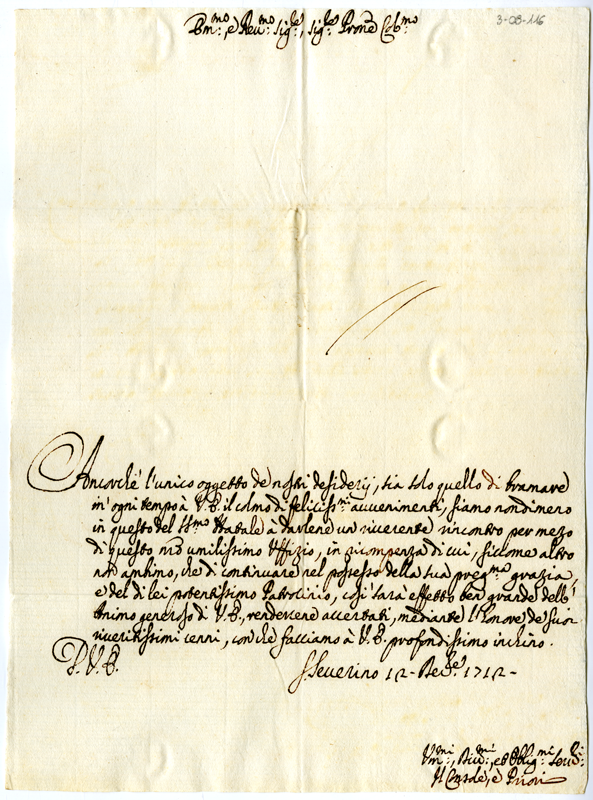 3-08-116
Em:mo, e Reu:mo Sig:re, Sig:re Prone Col:mo
Ancorché l'unico oggetto de nostri desiderij, sia solo quello di bramare
in' ogni tempo à V. E. il colmo di feliciss:mi auuenimenti, siamo nondimeno
in questo del SS:mo Natale à darlene un riuerente rincontro per mezo
di questo nro umilissimo Uffizio, in ricompenza di cui, siccome altro
non ambimo, che di continuare nel possesso della sua preg:ma grazia,
e del di lei potentissimo Patrocinio, così sarà effetto ben grande dell'
Animo generoso di V. E., rendercene accertati, mediante l'Onore de suoi
riueritissimi cenni, con che facciamo à V. E. profondissimo inchino.
D. V. E.
S. Seuerino 12 Xbre 1712
Um:mi, Diu:mi, et Oblig:mi Seru:ri
Il Console, e Priori